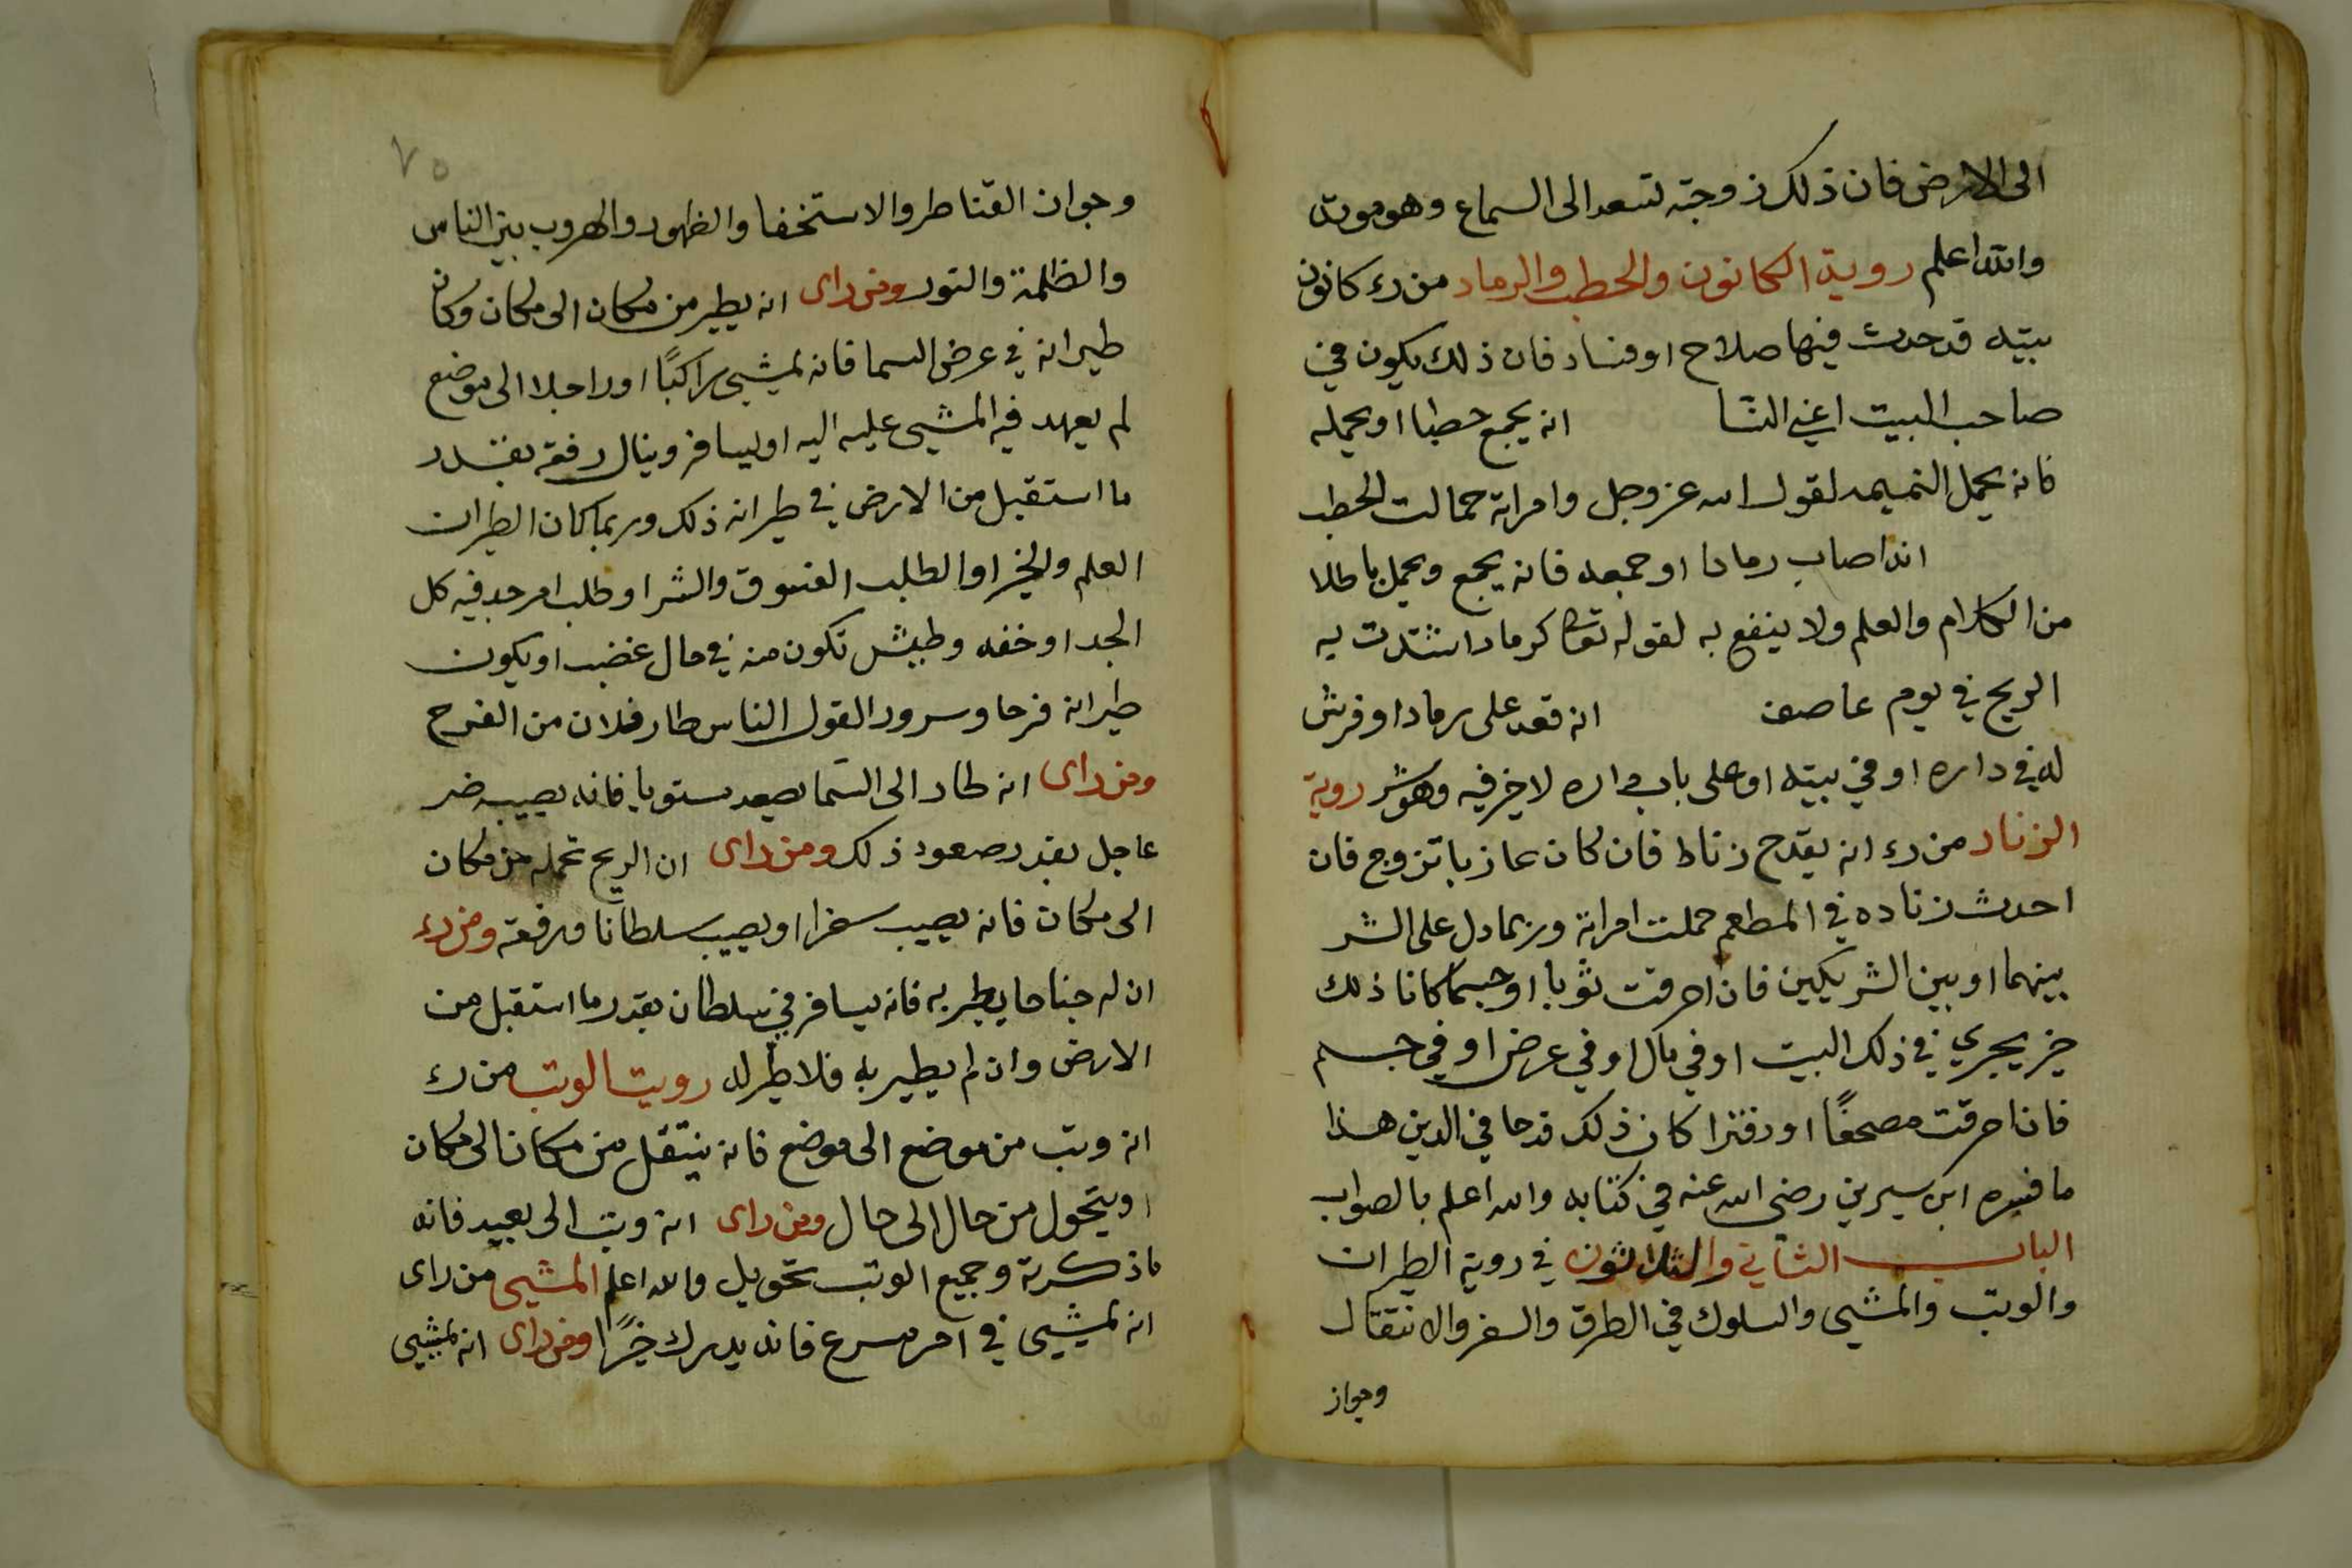 الى الارض فان ذلك زوجته تسعد الى السماع وهو موت
والله اعلم روية الكانون والحطب والرماد من رء كانون
ببيته قد حدث فيها صلاح او فساد فان ذلك يكون في
صاحب البيت اعني النسا انه يجمع حطبا او يحمله
فانه يحمل النميمه لقول الله عز وجل وامراته حمالت الحطب
انه اصاب رمادا او جمعه فانه يجمع ويحمل باطلا
من الكلام والعلم ولا ينفع به لقوله تعا كرماد اشتدت به
الريح في يوم عاصف انه قعد على رمادا وفرش
له في داره او في بيته او على باب داره لا خير فيه وهو شر روية
الزناد من رء انه يقدح زناط فان كان عازبا تزوج فان
احدث زناده في المطعم حملت امراته وربما دل على الشر
بينهما او بين الشريكين فان احرقت ثوبا او جسما كانا ذلك
خير يجري في ذلك البيت او في مال او في عرض او في جسم
فان احرقت مصحفًا او دفترا كان ذلك قدحا في الدين هذا
ما فسره ابن سيرين رضي الله عنه في كتابه والله اعلم بالصواب
الباب الثاني والثلاثون في روية الطيران
والوتب والمشي والسلوك في الطرق والسفر والانتقال
وجواز
٧٥
وجوان القناطر والاستخفا والظهور والهروب بين الناس
والظلمة والنور ومن راى انه يطير من مكان الى مكان وكان
طيرانه في عرض السما فانه يمشي راكبًا او راجلا الى موضع
لم يعهد فيه المشي عليه اليه او يسافر وينال رفعة بقدر
ما استقبل من الارض في طيرانه ذلك وربما كان الطيران
العلم والخير او الطلب الفسوق والشر او طلب امر جد فيه كل
الجد او خفه وطيش تكون منه في حال غضب او يكون
طيرانه فرحا وسرورا لقول الناس طار فلان من الفرح
ومن راى انه طار الى السما يصعد مستويا فانه يصيبه ضر
عاجل بقدر صعود ذلك ومن راى ان الريح تحمله من مكان
الى مكان فانه يصيب سفرا او يصيب سلطانا ورفعة ومن رء
ان له جناحا يطير به فانه يسافر في سلطان بقدر ما استقبل من
الارض وان لم يطير به فلا طير له رويت الوتب من رء
انه وتب من موضع الى موضع فانه ينتقل من مكان الى مكان
او يتحول من حال الى حال ومن راى انه وتب الى بعيد فانه
ما ذكرته وجميع الوتب تحويل والله اعلم المشي من راى
انه يمشي في امر مسرع فانه يدرك خيرًا ومن راى انه يمشي